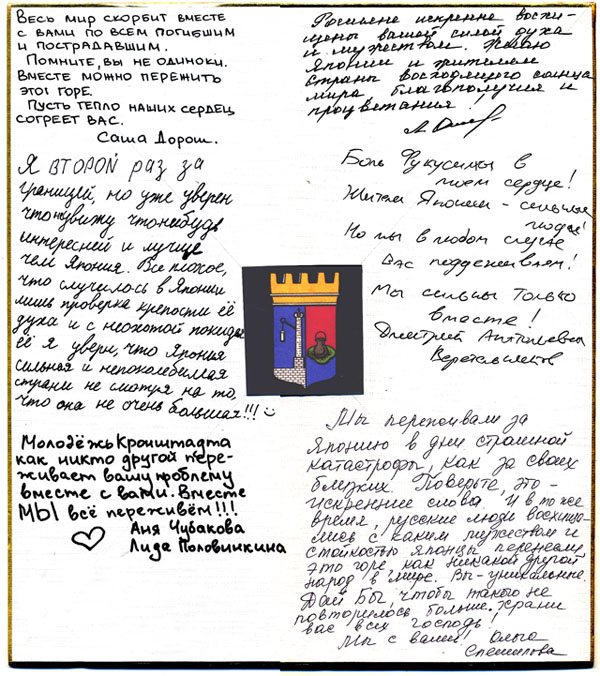 Весь мир скорбит вместе
с вами по всем погибшим
и пострадавшим.
Помните, вы не одиноки.
Вместе можно пережить
это горе.
Пусть тепло наших сердец
согреет вас.
Саша Дорош.
Я ВТОРОЙ раз за
границей, но уже уверен
что увижу что-нибудь
интересней и лучше
чем Япония. Все плохое,
что случилось в Японии
лишь проверка крепости её
духа и с неохотой покидаю
её я уверен, что Япония
сильная и непоколебимая
страни не смотря на то,
что она не очень большая!!!
Молодёжь Кронштадта
как никто другой пере-
живает вашу проблему
вместе с вами. Вместе
МЫ всё переживём!!!
Аня Чубакова
Лида Половинкина
Россияне искренне восхи-
щены вашей силой духа
и мужеством. Желаю
Японии и жителям
страны восходящего солнца
мира, благополучия и
процветания!
Боль Фукусимы в
моем сердце!
Жители Японии - сильные
люди!
Но мы в любом случае
Вас поддерживаем!
Мы сильны только
вместе!
Дмитрий
Мы переживали за
Японию в дни страшной
катастрофы, как за своих
близких. Поверьте, это -
искренние слова. И в то же
время, русские люди восхища-
лись с каким мужеством и
стойкостью японцы перенесли
это горе, как никакой другой
народ в мире. Вы - уникальные.
Дай Бы, чтобы такого не
повторилось больше. Храни
вас всех господь!
Мы с вами! Ольга